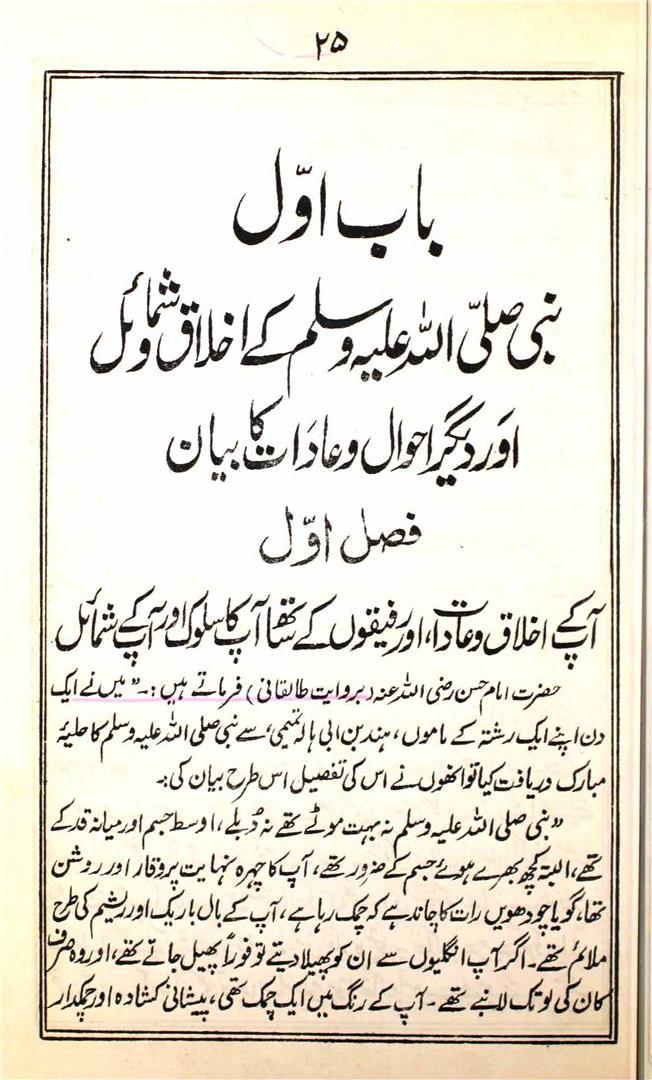 ۲۵
باب اوّل
نبی صلّی اللہ علیہ وسلم کے اخلاق وشمائل
اور دیگر احوال وعادات کا بیان
فصل اوّل
آپ کے اخلاق وعادات، اور رفیقوں کے ساتھ آپ کا سلوک اور آپ کے شمائل
حضرت امام حسن رضی اللہ عنہ (بروایت طالقانی) فرماتے ہیں :۔ ”میں نے ایک
دن اپنے ایک رشتہ کے ماموں، ہند بن ابی ہالہ تمیمی، سے نبی صلی اللہ علیہ وسلم کا حلیۂ
مبارک دریافت کیا تو انھوں نے اس کی تفصیل اس طرح بیان کی:۔
”نبی صلی اللہ علیہ وسلم نہ بہت موٹے تھے نہ دُبلے، اوسط جسم اور میانہ قد کے
تھے، البتہ کچھ بھرے ہوئے جسم کے ضرور تھے، آپ کا چہرہ نہایت پر وقار اور روشن
تھا، گویا چودھویں رات کا چاند ہے کہ چمک رہا ہے، آپ کے بال باریک اور ریشم کی طرح
ملائم تھے۔ اگر آپ انگلیوں سے ان کو پھیلا دیتے تو فوراً پھیل جاتے تھے، اور وہ صرف
کان کی لو تک لانبے تھے۔ آپ کے رنگ میں ایک چمک تھی، پیشانی کشادہ اور چمکدار